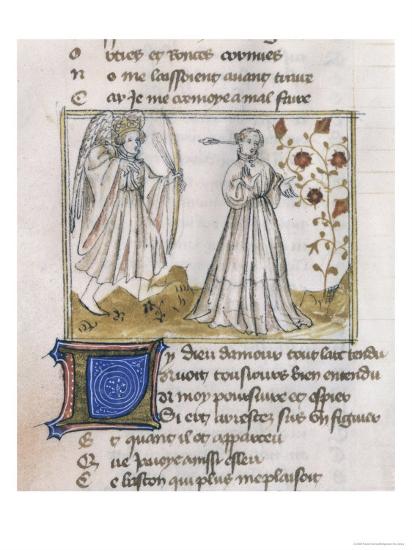 O rties et ronces cornues
N o me laissoient auant traire
C ar Je me cremoye a mal faire
Ly dieu damour tout larc tendu
Auoit tousiours bien entendu
A moy poursuire et espier
Si est arrestez sus on figuier
E t quant il ot apparceu
Q ue jauoye ainssi esleu
C e baston qui plus me plaisoit